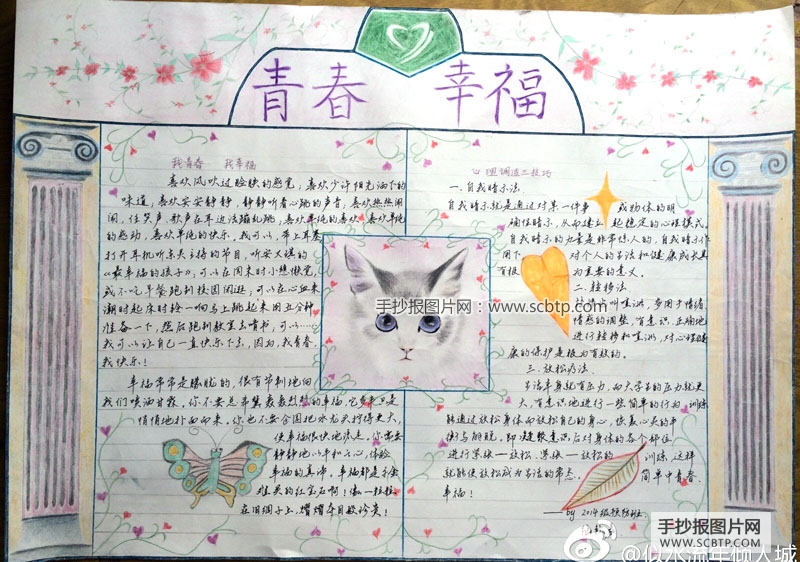 青春 幸福
我青春 我幸福
喜欢风吹过脸颊的感觉,喜欢少许阳光洒下的
味道,喜欢安安静静,静静听着心跳的声音,喜欢热热闹
闹,任笑声,歌声在耳边法蹦乱跳,喜欢单纯的喜欢,喜欢单纯
的感动,喜欢单纯的快乐。我可以,带上耳塞
打开耳机听东夫主持的节目,听安又琪的
《最幸福的孩子》,可以在周末时小憩懒觉,
或不吃早餐跑到校园闲逛,可以在心血来
潮时起床时铃一响马上跳起来用五分钟
准备一下,然后跑到教室去看书,可以……
我可以让自己一直快乐下去,因为,我青春,
我快乐!
幸福常常是朦胧的,很有节制地向
我们喷洒甘霖。你不要总希冀轰轰烈烈的幸福,它多半只是
悄悄地扑面而来。你也不要企图把水龙头拧得更大,
使幸福很快地流走,你需要
静静地以平和之心,体验
幸福的真谛。幸福都是不会
在旧绸子上,熠熠夺目般珍贵!
心理调适三技巧
一、自我暗示法
自我暗示就是通过对某一件事
或物体的明
确性暗示,从而建立
起稳定的心理模式。
自我暗示的力量是非常惊人的,自我暗示作
用下
对个人的生活和健康成长具
有极
为重要的意义。
二、转移法
情绪的调整,有意识、正确地
进行转移和
康的保护是极为有效的。
三、放松疗法
生活本身就有压力,而大学生的压力就更
大,有意识地进行一些简单的行为,训练
能通过放松身体而放松自己的身心,恢复心灵的平
后对身体的各个部位
进行紧张—放松、紧张—放松的
训练,这样
就能使放松成为生活的常态。
简单中青春
幸福!
——by 2014级
手抄报图片网:www.scbtp.com
手抄报图片网
WWW.SCBTP.COM
@似水流年倾人城